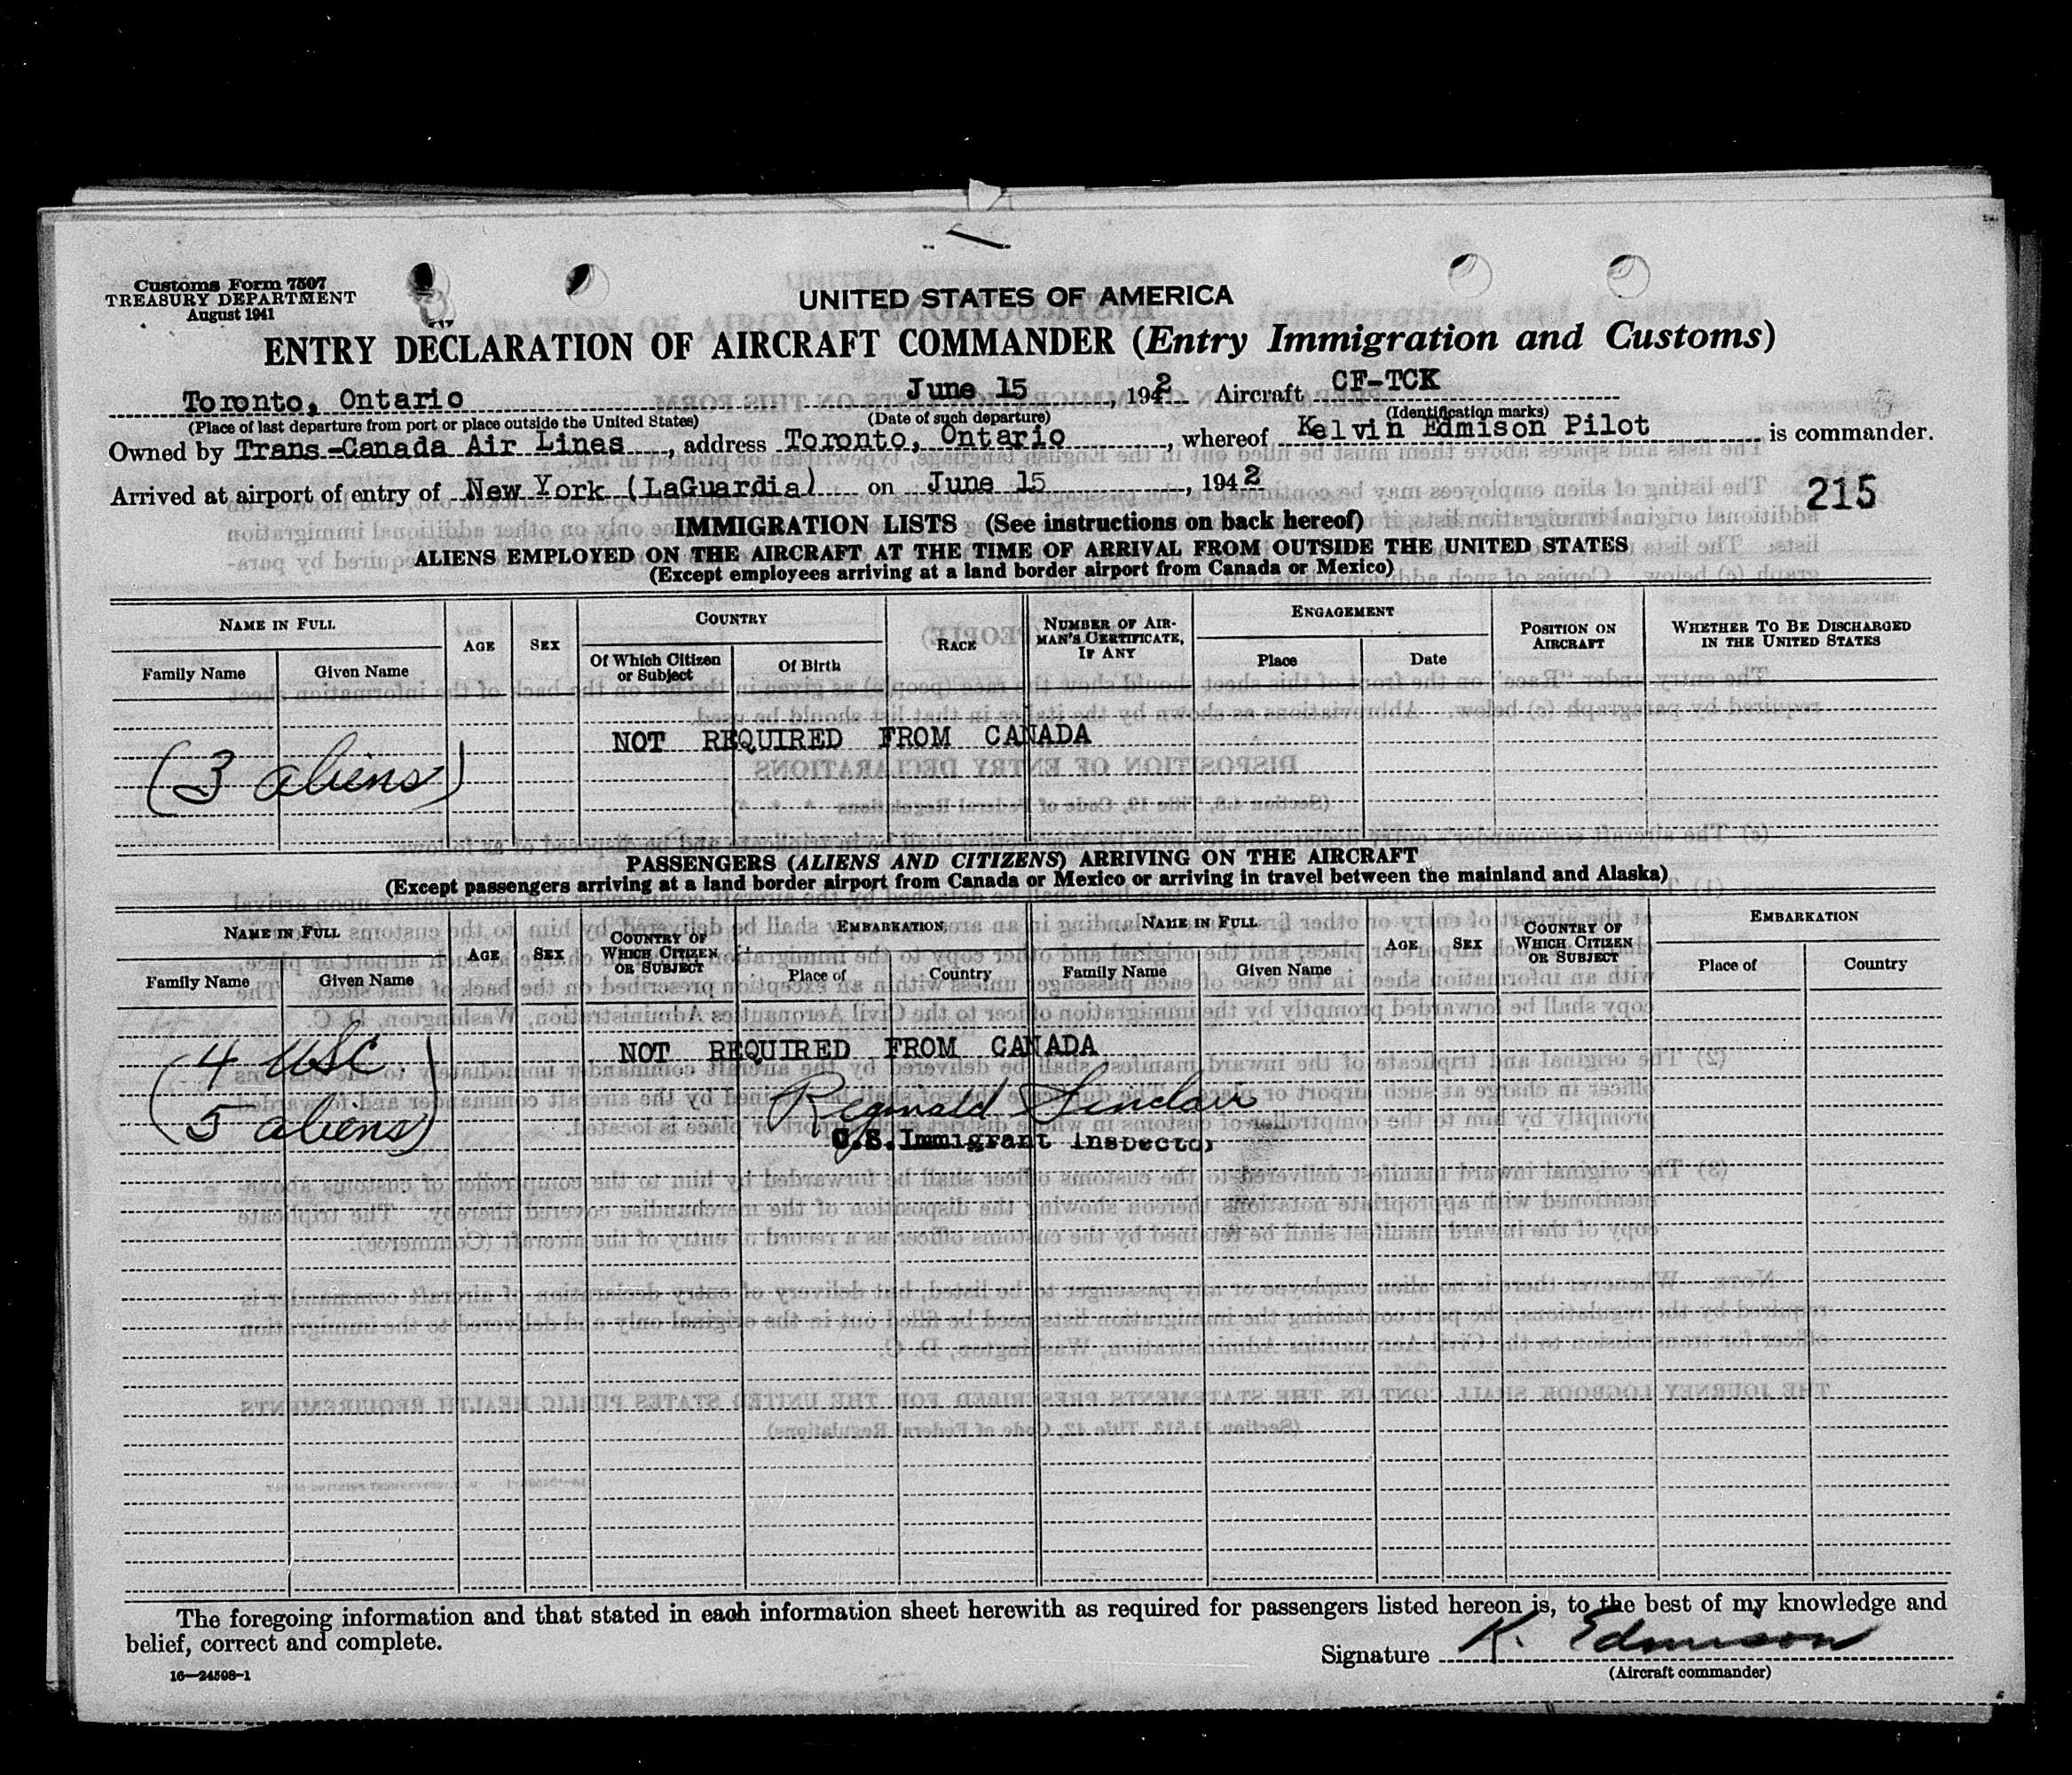 Customs Form 7507
TREASURY DEPARTMENT
August 1941
UNITED STATES OF AMERICA
ENTRY DECLARATION OF AIRCRAFT COMMANDER (Entry Immigration and Customs)
Toronto, Ontario June 15, 1942 Aircraft CF-TCK
(Place of last departure from port or place outside the United States) (Date of such departure) (Identification marks)
Owned by Trans-Canada Air Lines, address Toronto, Ontario, whereof Kelvin Edmison Pilot is commander.
Arrived at airport of entry of New York (LaGuardia) on June 15, 1942
215
IMMIGRATION LISTS (See instructions on back hereof)
ALIENS EMPLOYED ON THE AIRCRAFT AT THE TIME OF ARRIVAL FROM OUTSIDE THE UNITED STATES
(Except employees arriving at a land border airport from Canada or Mexico)
NAME IN FULL
Family Name Given Name
AGE
SEX
COUNTRY
Of Which Citizen or Subject
Of Birth
RACE
NUMBER OF AIRMAN'S CERTIFICATE, IF ANY
ENGAGEMENT
Place Date
POSITION ON AIRCRAFT
WHETHER TO BE DISCHARGED IN THE UNITED STATES
NOT REQUIRED FROM CANADA
(3 aliens)
PASSENGERS (ALIENS AND CITIZENS) ARRIVING ON THE AIRCRAFT
(Except passengers arriving at a land border airport from Canada or Mexico or arriving in travel between the mainland and Alaska)
NAME IN FULL
Family Name Given Name
AGE
SEX
COUNTRY OF WHICH CITIZEN OR SUBJECT
EMBARKATION
Place of Country
NAME IN FULL
Family Name Given Name
AGE
SEX
COUNTRY OF WHICH CITIZEN OR SUBJECT
EMBARKATION
Place of Country
(4 USC.)
NOT REQUIRED FROM CANADA
(5 aliens)
Reginald Sinclair
U.S. Immigrant Inspector
The foregoing information and that stated in each information sheet herewith as required for passengers listed hereon is, to the best of my knowledge and
belief, correct and complete.
Signature K. Edmison
(Aircraft commander)
16—24598-1